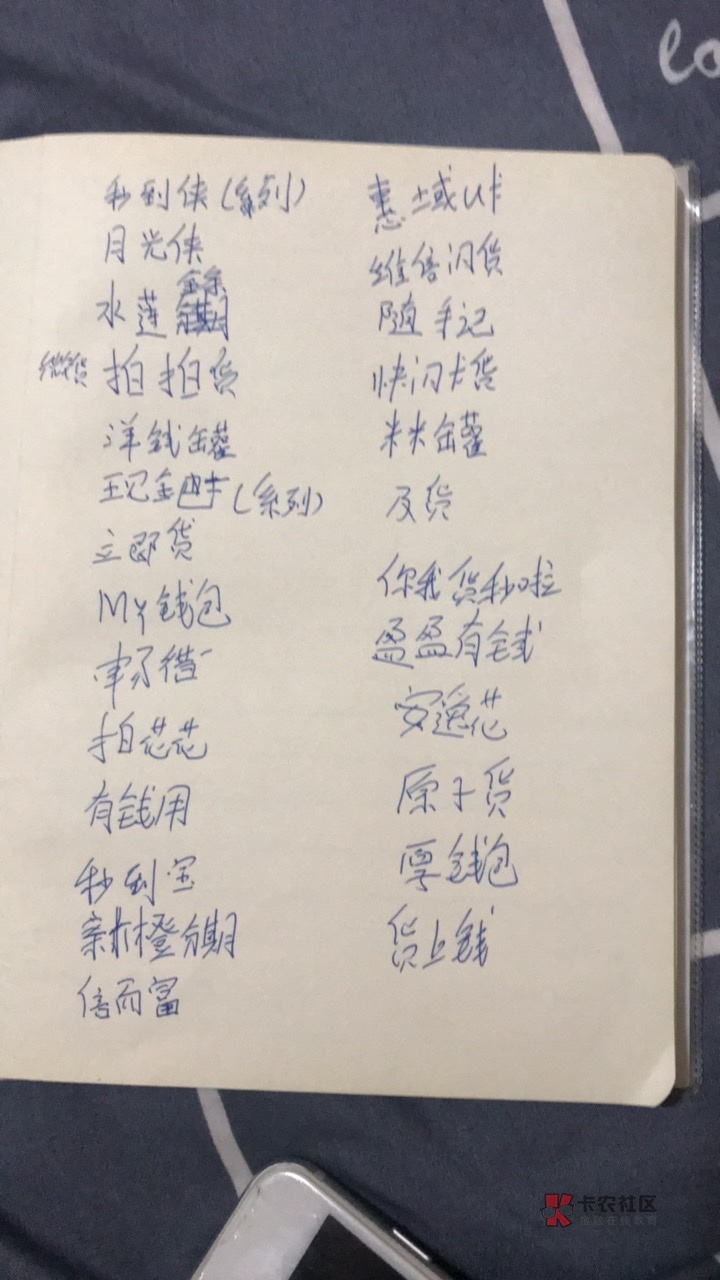 秒到侠(系列)
月光侠
水莲金条
分期
微贷 拍拍贷
洋钱罐
现金卡(系列)
立即贷
My钱包
拍芯芯
有钱用
秒到宝
新橙分期
信而富
惠域U卡
维信闪贷
随手记
快闪卡贷
米米罐
及贷
你我贷秒啦
盈盈有钱
安逸花
原子贷
厚钱包
贷上钱
lo
卡农社区
金融在线教育